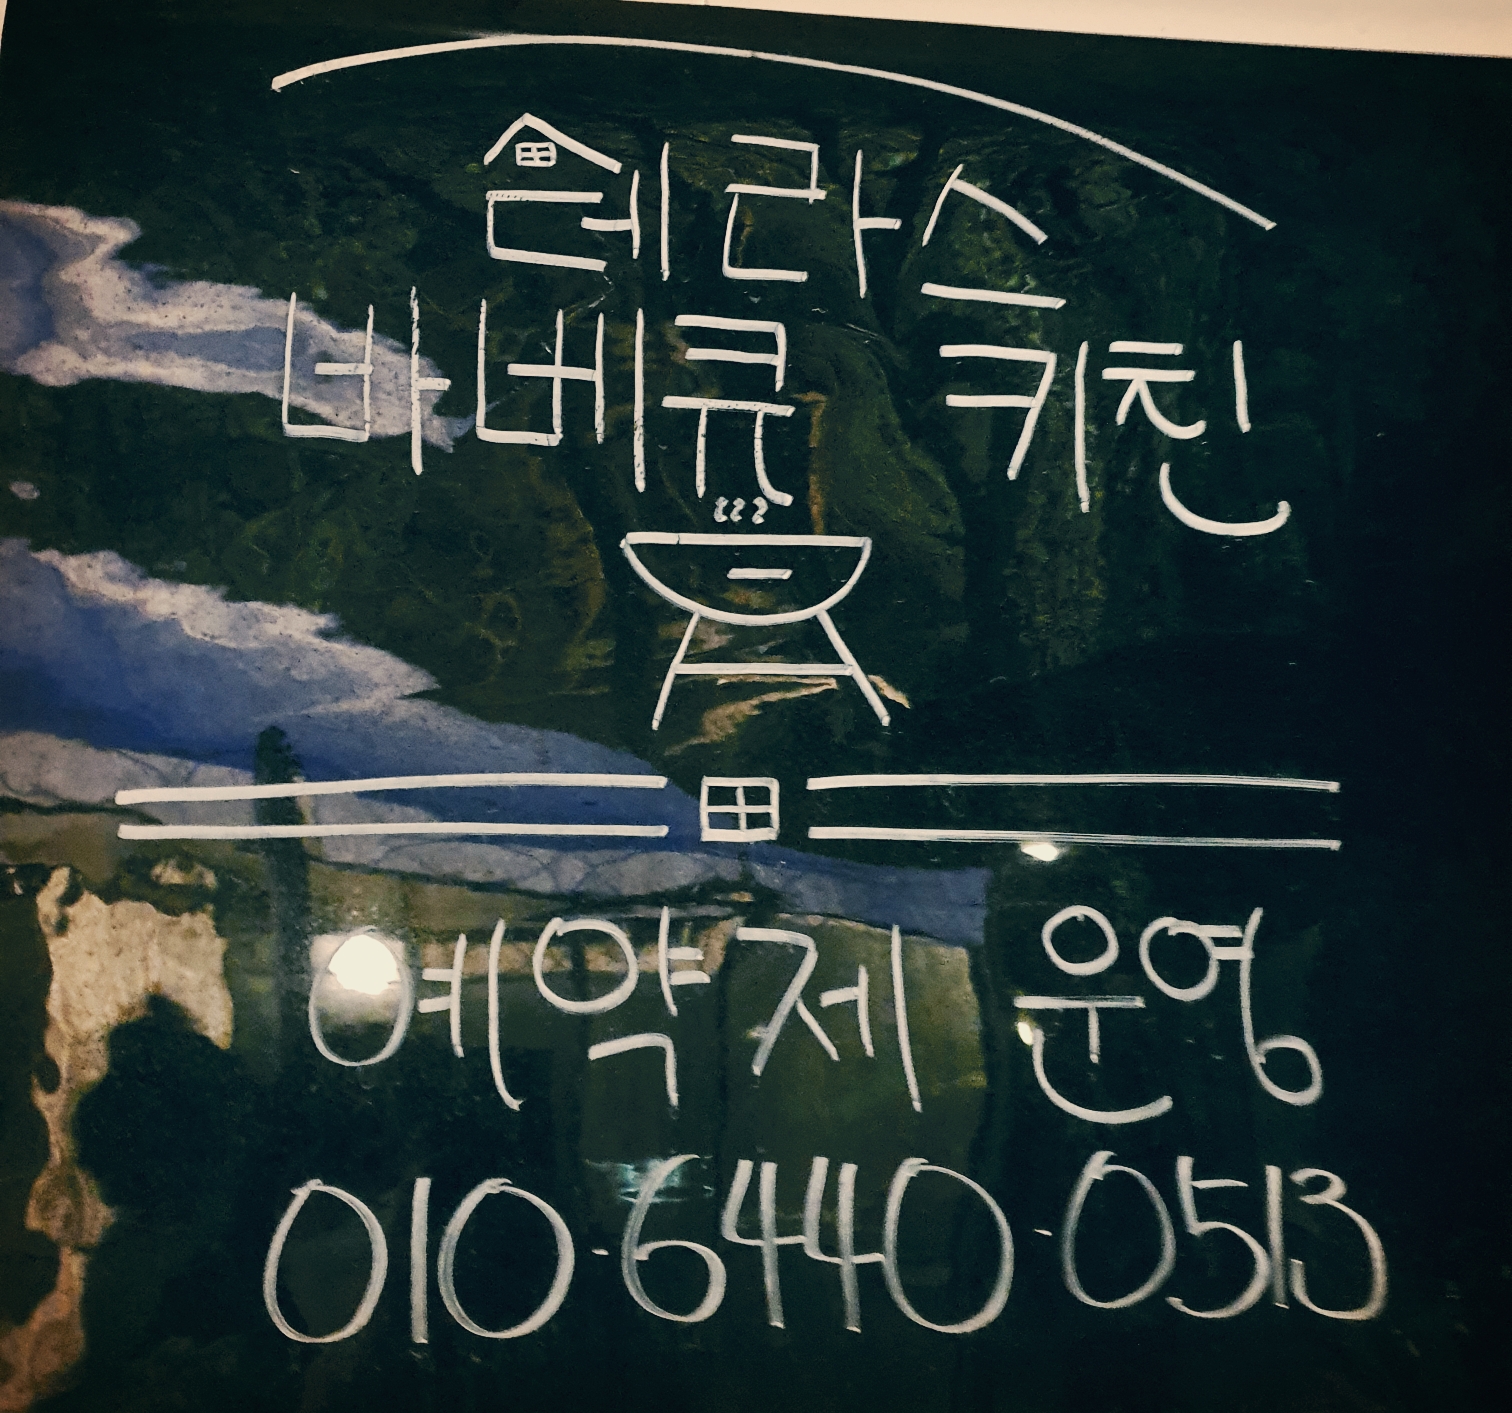 테라스
바베큐 키친
예약제 운영
010-6440-0513